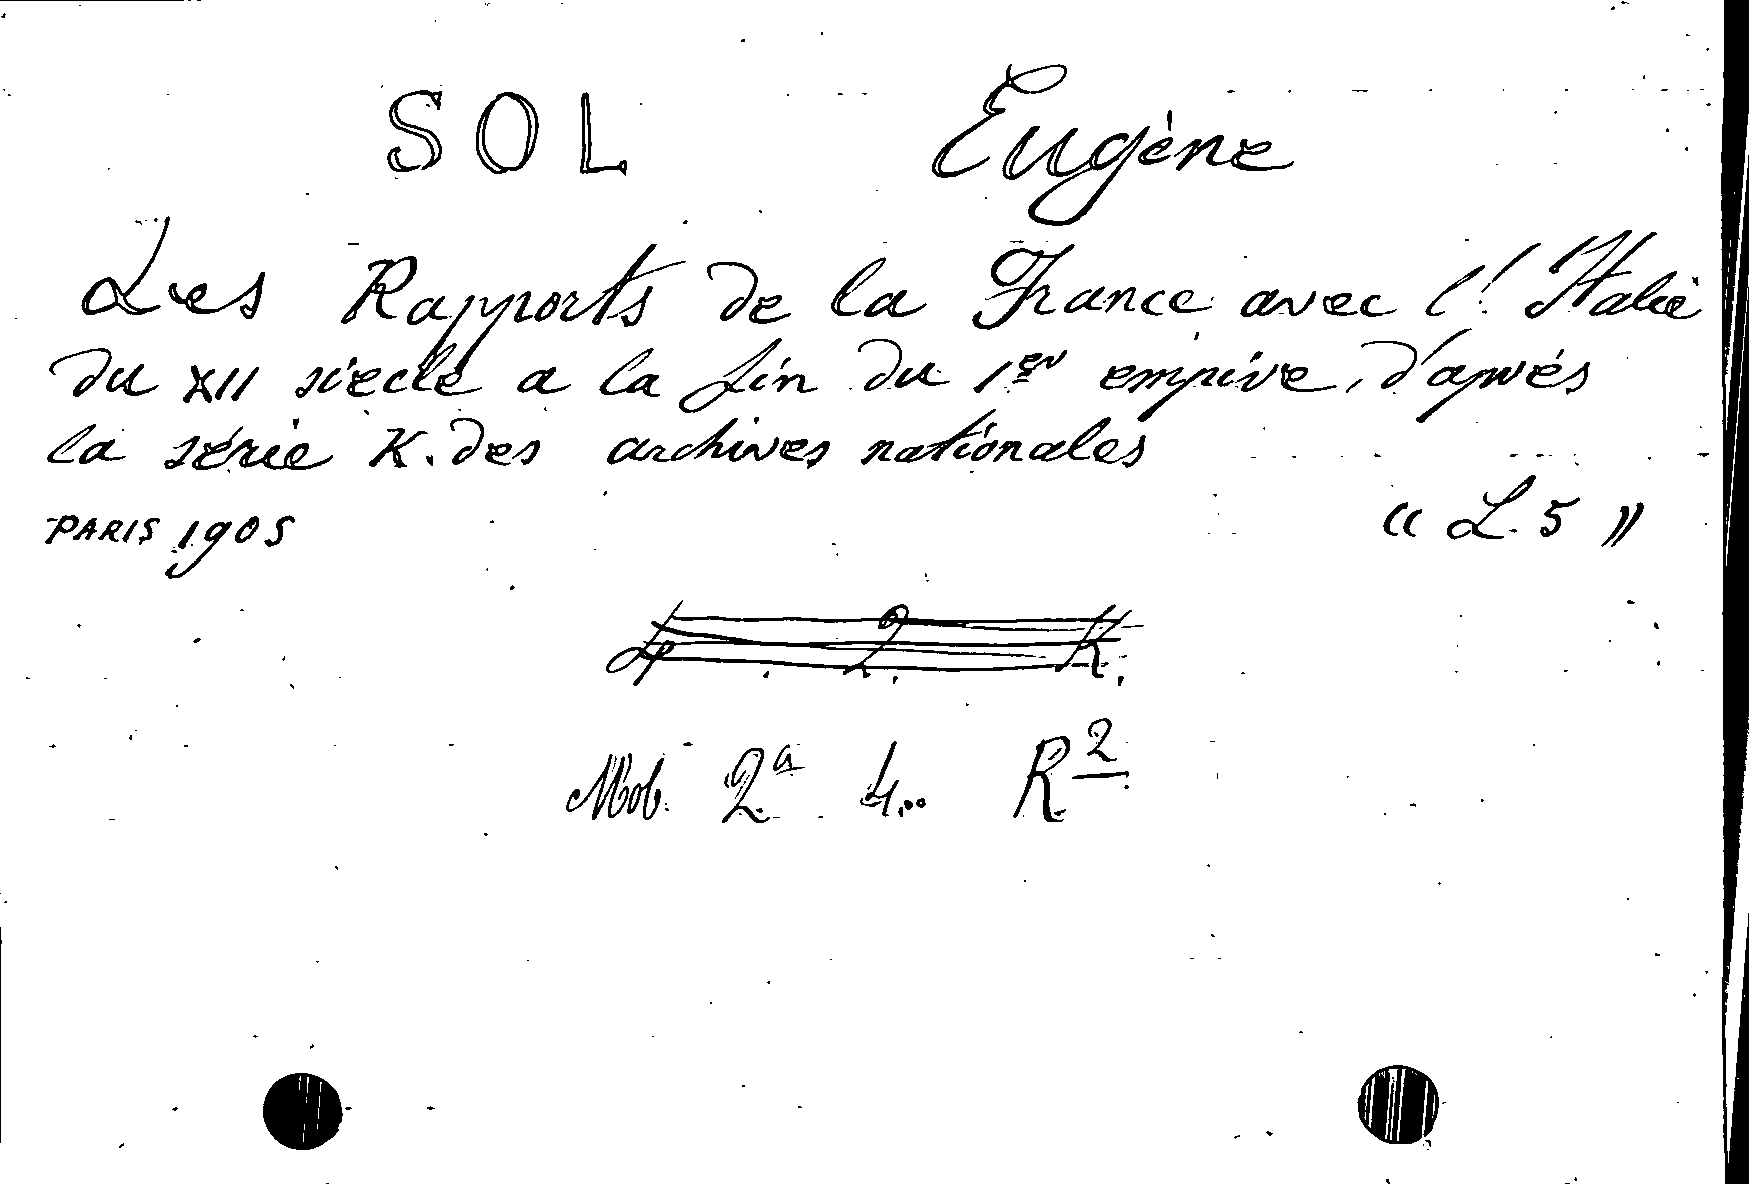 SOL Eugène
Les Rapports de la France avec l'Italie
du XII siècle a la fin du 1er empire, d'aprés
la série K. des archives nationales
PARIS 1905 « L. 5 »
4. 2. K.
Mob. 2a 4.. R2